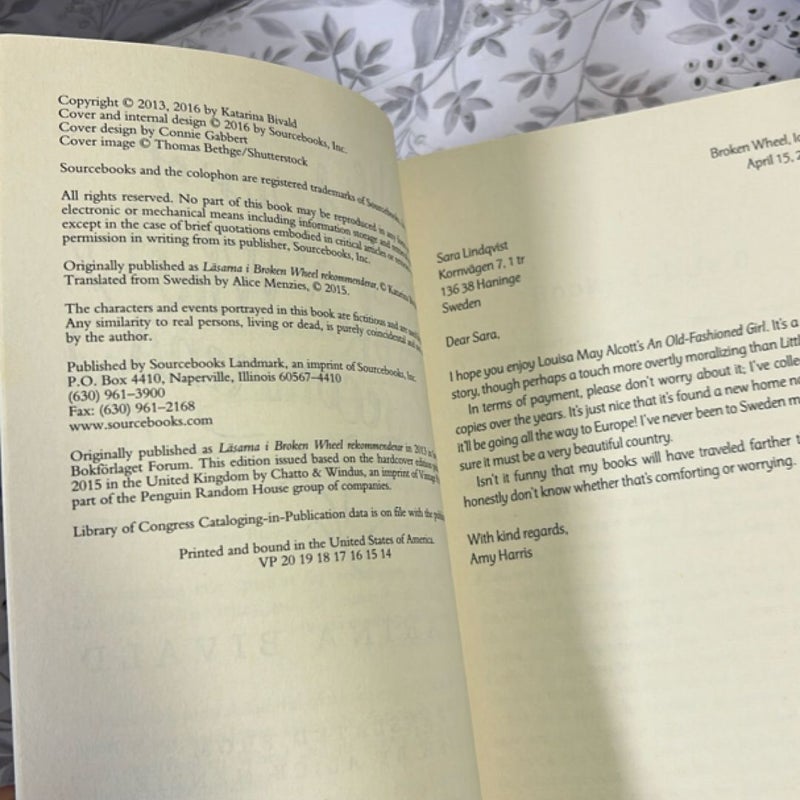 Copyright © 2013, 2016 by Katarina Bivald
Cover and internal design © 2016 by Sourcebooks, Inc.
Cover design by Connie Gabbert
Cover image © Thomas Bethge/Shutterstock
Sourcebooks and the colophon are registered trademarks of Sourcebooks,
All rights reserved. No part of this book may be reproduced in any
electronic or mechanical means including information storage and
except in the case of brief quotations embodied in critical articles or
permission in writing from its publisher, Sourcebooks, Inc.
Originally published as Läsarna i Broken Wheel rekommenderar, © Katarina
Translated from Swedish by Alice Menzies, © 2015.
The characters and events portrayed in this book are fictitious and are
Any similarity to real persons, living or dead, is purely coincidental and
by the author.
Published by Sourcebooks Landmark, an imprint of Sourcebooks, Inc.
P.O. Box 4410, Naperville, Illinois 60567–4410
(630) 961–3900
Fax: (630) 961–2168
www.sourcebooks.com
Originally published as Läsarna i Broken Wheel rekommenderar in 2013
Bokförlaget Forum. This edition issued based on the hardcover edition
2015 in the United Kingdom by Chatto & Windus, an imprint of Vintage
part of the Penguin Random House group of companies.
Library of Congress Cataloging-in-Publication data is on file with the
Printed and bound in the United States of America.
VP 20 19 18 17 16 15 14
Broken Wheel,
April 15,
Sara Lindqvist
Kornvägen 7, 1 tr
136 38 Haninge
Sweden
Dear Sara,
I hope you enjoy Louisa May Alcott's An Old-Fashioned Girl. It's a
story, though perhaps a touch more overtly moralizing than
In terms of payment, please don't worry about it; I've
copies over the years. It's just nice that it's found a new home
it'll be going all the way to Europe! I've never been to Sweden
sure it must be a very beautiful country.
Isn't it funny that my books will have traveled farther
honestly don't know whether that's comforting or worrying.
With kind regards,
Amy Harris